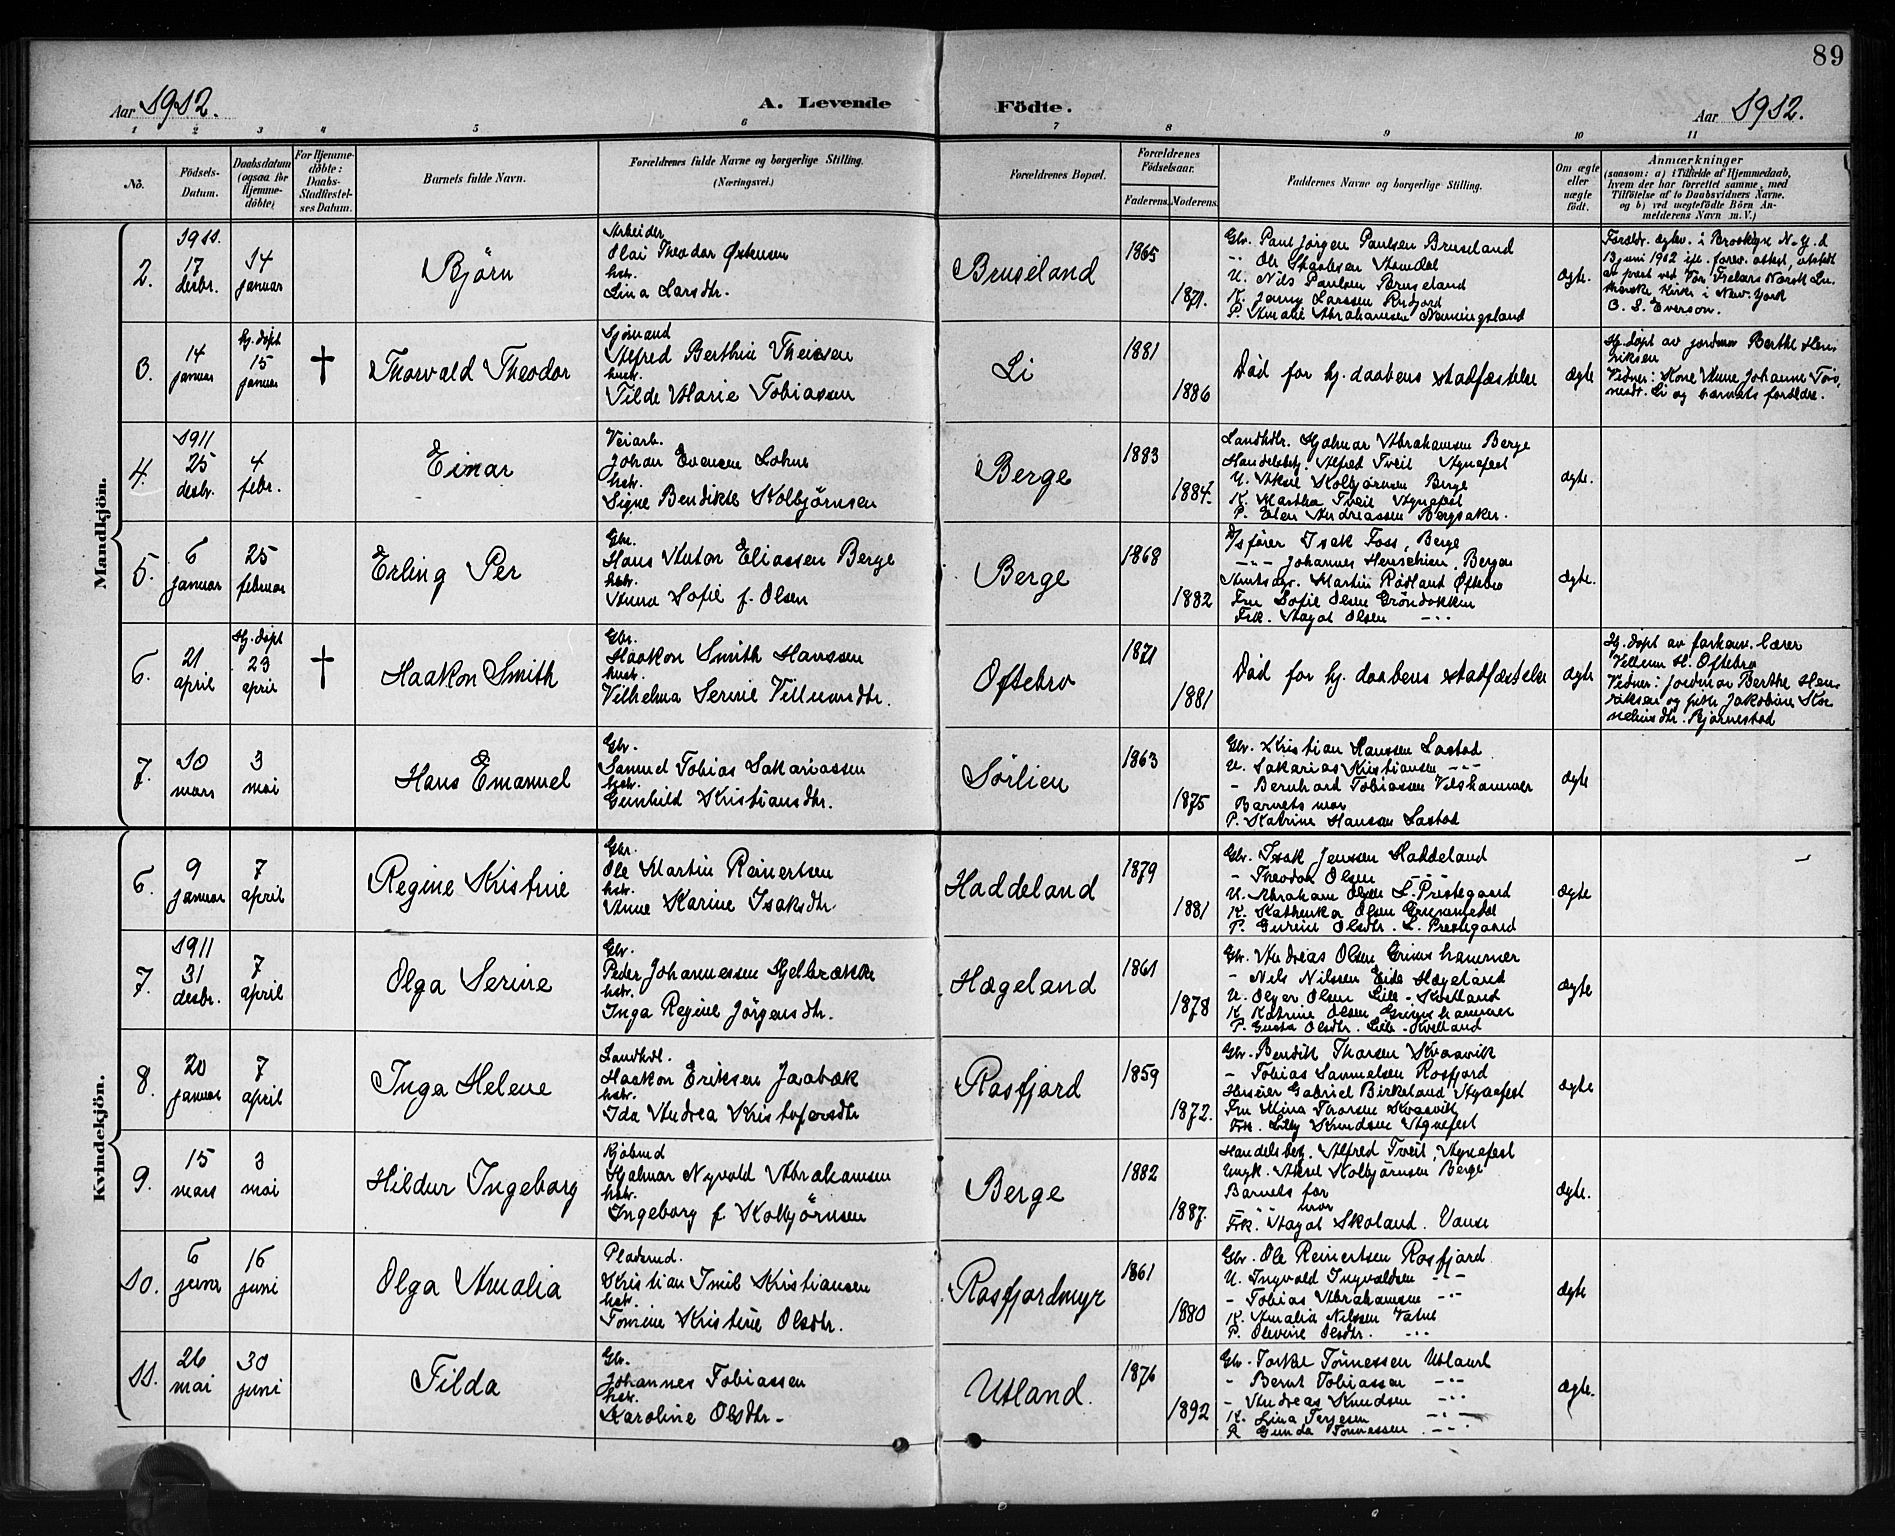 89
Aar 1912.
A. Levende Födte.
Aar 1912.
1 2 3 4 5 6 7 8 9 10 11
No.
Födsels-
Datum.
Daabsdatum
(ogsaa for
Hjemme-
döbte)
For Hjemme-
döbte:
Daabs-
Stadfæstel-
ses Datum.
Barnets fulde Navn.
Forældrenes fulde Navne og borgerlige Stilling.
(Næringsvei.)
Forældrenes Bopæl.
Forældrenes
Födselsaar.
Faderens. Moderens.
Faddernes Navne og borgerlige Stilling.
Om ægte
eller
uægte
födt.
Anmærkninger
(saasom: a) i Tilfælde af Hjemmedaab,
hvem der har forrettet samme, med
Tilföielse af to Daabsvidners Navne.
og b) ved uægtefödte Börn An-
melderens Navn m. V.)
Mandkjön.
2.
1911.
17
desbr.
14
januar
Bjørn
Arbeider
Olai Theodor Østensen
hstr.
Lina Larsdtr.
Bruseland
1865
1871.
Gbr. Paul Jörgen Paulsen Bruseland
Ole
U. Nils Paulsen Bruseland
K. Janny Larssen Rosfjord
P. Amalie Abrahamsen
ægte.
Foreldr. egtev. i Brooklyn N.Y. d
13 juni 1902 ifl. forev. attest, utstedt
av prest ved Vor Frelsers Norsk Lu-
therske Kirke i New-York
O. S. Everson.
3.
14
januar
Hj. døpt
15
januar
†
Thorvald Theodor
Sjømand
Alfred Berthin Theisen
hustr.
Tilde Marie Tobiassen
Li
1881
1886
Död for hj. daabens stadfæstelse
ægte
Hj. døpt av jordmor Berthe Hen-
riksen
Vidner: Kone Anne Johanne Tøn-
nesdt. Li og barnets foreldre.
4.
1911
25
desbr.
4
febr.
Einar
Veiarb.
Johan Evensen Lohne
hstr.
Signe Bendikte Kolbjørnsen
Berge
1883
1884.
Landhdlr. Hjalmar Abrahamsen Berge
Handelsbetj. Alfred Tveit Agnefest
U. Aksel Kolbjørnsen Berge
K. Martha Tveit Agnefest
P. Elen Andreassen Bergsaker.
ægte.
5.
6
januar
25
februar
Erling Per
Gbr.
Hans Anton Eliassen Berge
hstr.
Anna Sofie f. Olsen
Berge
1868
1882
D/sfører Isak Foss, Berge
-"- Johannes Henschien, Bergen
Martin Rödland Øftebro
Fru Sofie Olsen Gröndokken
Frk. Aagot Olsen -"-
ægte.
6.
21
april
Hj. døpt
23
april
†
Haakon Smith
Gbr.
Haakon Smith Hanssen
hustr.
Vilhelma Serine Villumsdtr.
Oftebro
1871
1881
Död for hj. daabens stadfæstelse
ægte
Hj. døpt av forhenv. lærer
Villum H. Oftebro
Vidner: Jordmor Berthe Hen-
riksen og Jakobine Kor-
neliusdtr. Bjørnestad
7.
10
mars
3
mai
Hans Emanuel
Gbr.
Samuel Tobias Sakariassen
hstr.
Gunhild Kristiansdtr.
Sørlien
1863
1875
Gbr. Kristian Hanssen Lastad
U. Sakarias Kristiansen -"-
- Bernhard Tobiassen Vilshammer
Barnets mor
P. Katrine Hanssen Lastad
ægte
Kvindekjön.
6.
9
januar
7
april
Regine Kristine
Gbr.
Ole Martin Reinertsen
hstr.
Anne Karine Isaksdtr.
Haddeland
1879
1881
Gbr. Isak Jenssen Haddeland
- Theodor Olsen -"-
U. Abraham Olsen L. Prestegaard
K. Kathinka Olsen
P. Gurine Olsdtr. L. Prestegaard
ægte
7.
1911
31
desbr.
7
april
Olga Serine
Gbr.
Peder Johannessen Hjelbrække
hstr.
Inga Regine Jörgensdtr.
Hægeland
1861
1878
Gbr. Andreas Olsen Grimshammer
- Nils Nilssen Eide Hægeland
U. Olger Olsen Lille-Kvelland
K. Katrine Olsen Grimshammer
P. Gusta Olsdtr. Lille-Kvelland
ægte
8.
20
januar
7
april
Inga Helene
Landhdl.
Haakon Eriksen Jaabæk
hstr.
Ida Andrea Kristofersdtr
Rosfjord
1859
1872.
Gbr. Bendik Thorsen Kvaavik
- Tobias Samuelsen Rosfjord
Huseier Gabriel Birkeland Agnefest
Fru Mina Thorsen Kvaavik
Frk. Lilly Knudsen Agnefest
ægte
9.
15
mars
3
mai
Hildur Ingeborg
Kjøbmd
Hjalmar Nyvold Abrahamsen
hstr.
Ingeborg f. Kolbjørnsen
Berge
1882
1887.
Handelsbetj. Alfred Tveit, Agnefest
Ungk. Aksel Kolbjørnsen Berge
Barnets far
-"- mor
Frk. Aagot Skoland. Vanse
ægte.
10.
6
juni
16
juni
Olga Amalia
Pladsmd.
Kristian Emil Kristiansen
hstr.
Tomine Kristine Olsdtr.
Rosfjordmyr
1861
1880
Gbr. Ole Reinertsen Rosfjord
U. Ingvald Ingvaldsen -"-
- Tobias Abrahamsen -"-
K. Amalia Nilssen Vatne
P. Olevine Olsdtr. -"-
ægte
11.
26
mai
30
juni
Tilda
Gbr.
Johannes Tobiassen
hstr.
Karoline Olsdtr.
Utland.
1876
1892
Gbr. Torkel Tönnessen Utland
- Bernt Tobiassen -"-
- Andreas Knudsen -"-
K. Lina Terjesen -"-
P. Gunda Tönnessen -"-
ægte.